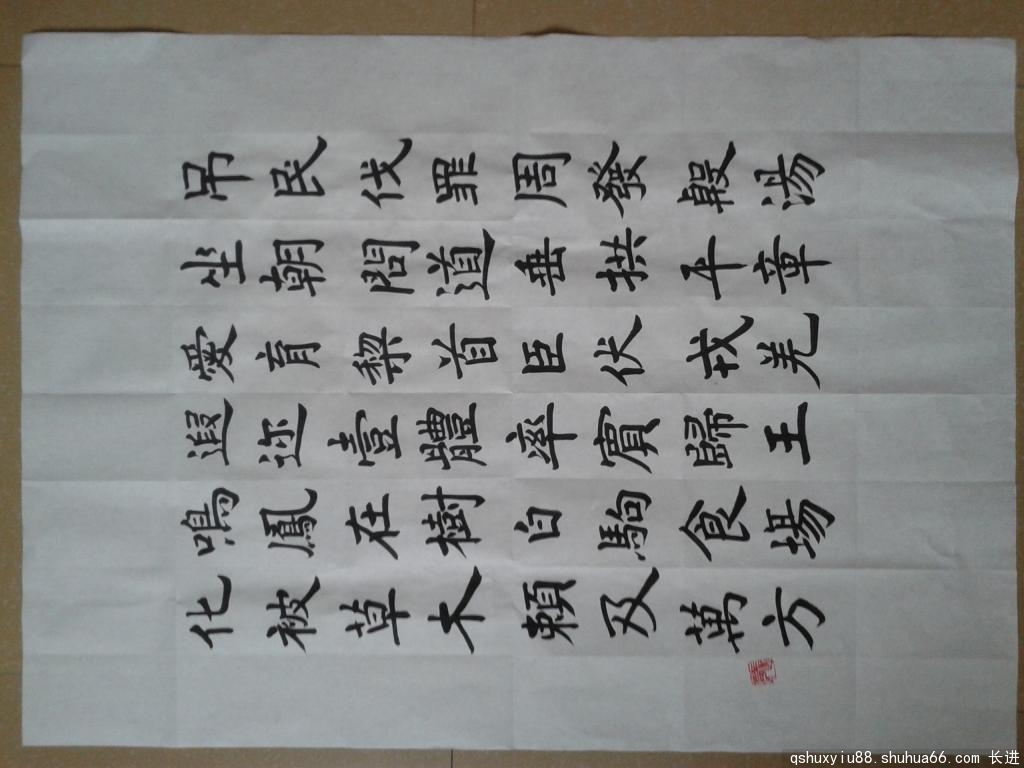 吊民伐罪周發殷湯
坐朝問道垂拱平章
愛育黎首臣伏戎羌
遐迩壹體率賓歸王
鳴鳳在樹白駒食場
化被草木賴及萬方
qshuxyiu88.shuhua66.com 长进